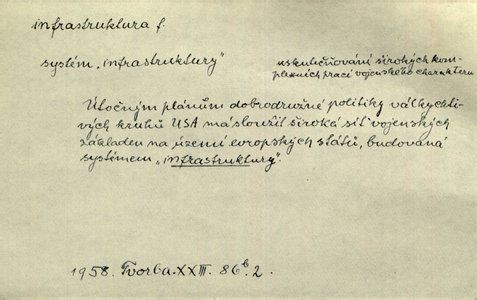 infrastruktura f.
systém „infrastruktury"
uskutečňování širokých kom-
plexních prací vojenského charakteru
Útočným plánům dobrodružné politiky válkychti-
vých kruhů USA má sloužit široká síť vojenských
základen na území evropských států, budovaná
systémem „infrastruktury".
1958. Tvorba. XXIII. 86 b. 2.